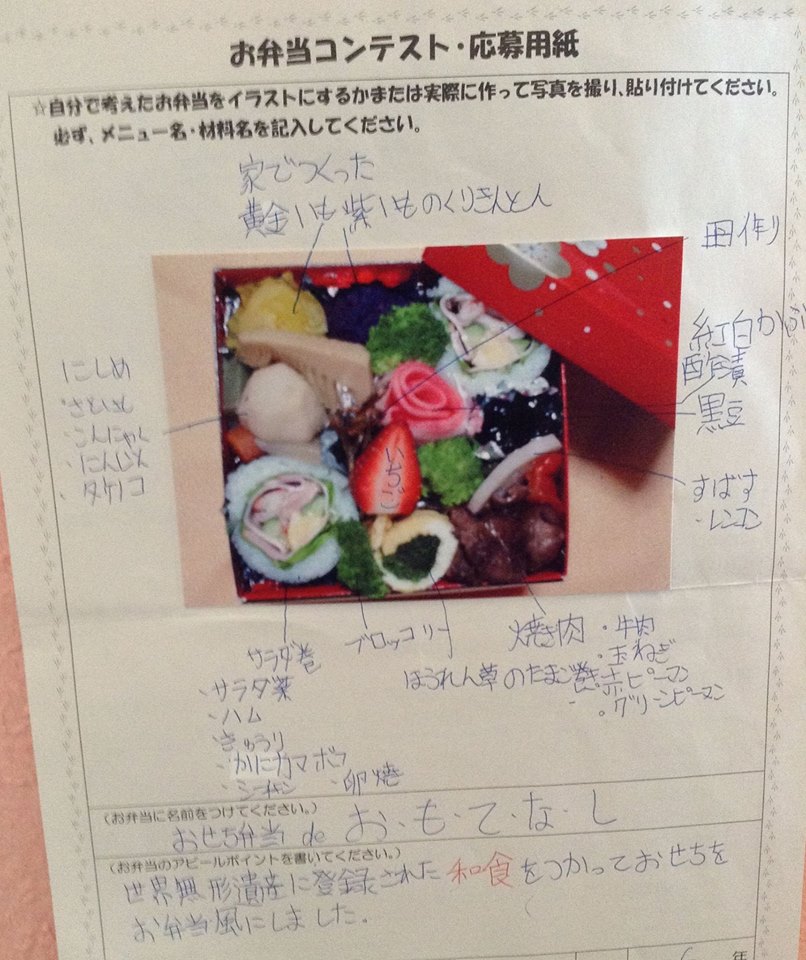 お弁当コンテスト・応募用紙
☆自分で考えたお弁当をイラストにするかまたは実際に作って写真を撮り、貼り付けてください。
必ず、メニュー名・材料名を記入してください。
家でつくった
黄金いも紫いものくりきんとん
田作り
紅白かぶ
酢漬
黒豆
すばす
・レンコン
にしめ
・さといも
・こんにゃく
・にんじん
・タケノコ
いちご
サラダ巻
・サラダ菜
・ハム
・きゅうり
・かにカマボコ
・シーチキン ・卵焼
ブロッコリー
ほうれん草のたまご巻き
焼き肉 ・牛肉
・玉ねぎ
・赤ピーマン
・グリーンピーマン
(お弁当に名前をつけてください。)
おせち弁当 de お・も・て・な・し
(お弁当のアピールポイントを書いてください。)
世界無形遺産に登録された和食をつかっておせちを
お弁当風にしました。
年